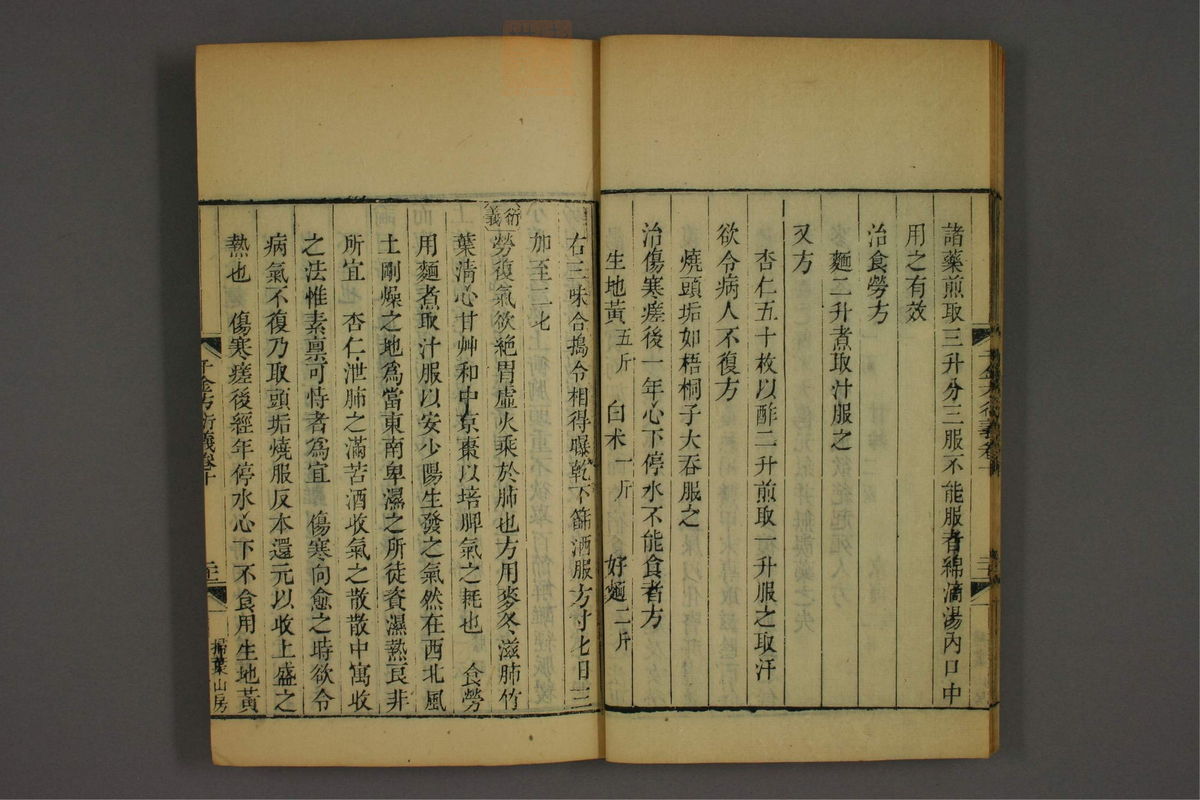 諸藥煎取三升分三服不能服者綿滴湯內口中
用之有效
治食勞方
麵二升煮取汁服之
又方
杏仁五十枚以酢二升煎取一升服之取汗
欲令病人不復方
燒頭垢如梧桐子大吞服之
治傷寒瘥後一年心下停水不能食者方
生地黃五斤　白朮一斤　好麵二斤
右三味合搗令相得曝乾下篩酒服方寸匕日三
加至二匕
衍義
勞復氣欲絕胃虛火乘於肺也方用麥冬滋肺竹
葉清心甘艸和中京棗以培脾氣之耗也　食勞
用麵煮取汁服以安少陽生發之氣然在西北風
土剛燥之地為當東南卑濕之所徒資濕熱良非
所宜　杏仁泄肺之滿苦酒收氣之散散中寓收
之法惟素稟可恃者為宜　傷寒向愈之時欲令
病氣不復乃取頭垢燒服反本還元以收上盛之
熱也　傷寒瘥後經年停水心下不食用生地黃
千金方衍義卷十
掃葉山房